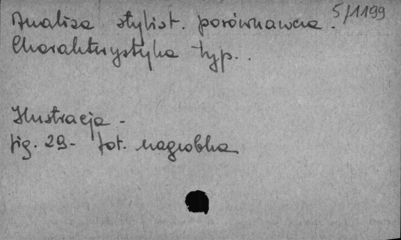 Analiza stylist. porównawcza. 5/1199
Charakterystyka typ..
Ilustracja -
fig. 29- fot. nagrobka